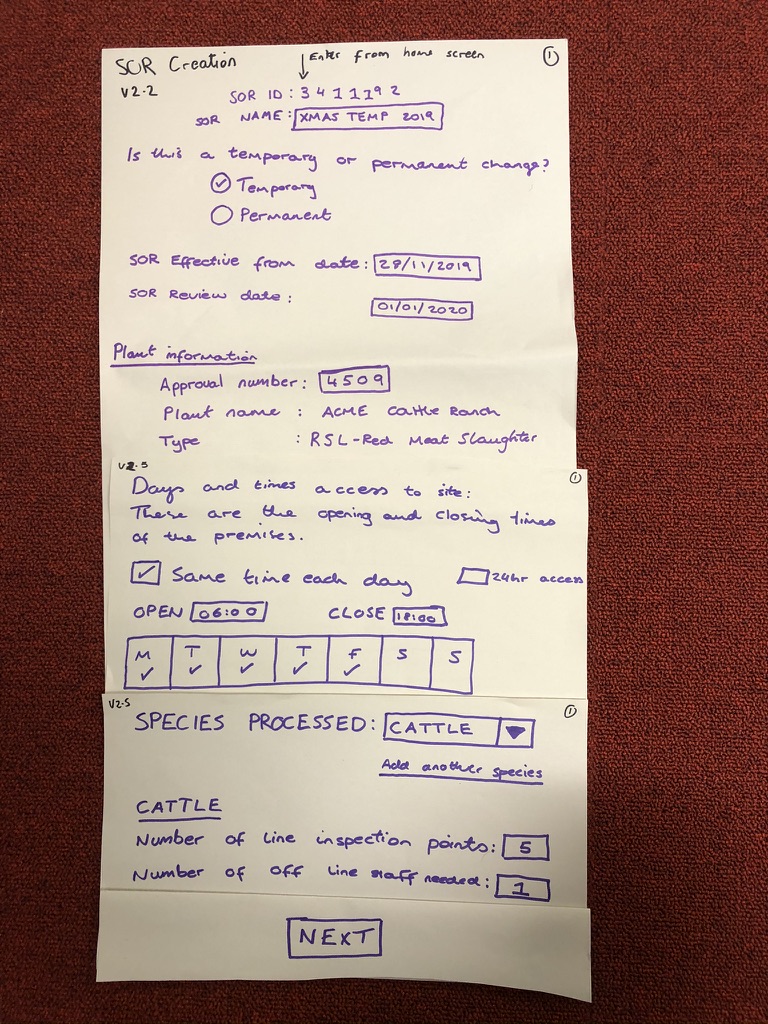 SOR Creation
Enter from home screen
1
V2.2
SOR ID: 3411192
SOR NAME: XMAS TEMP 2019
Is this a temporary or permanent change?
Temporary
Permanent
SOR Effective from date: 28/11/2019
SOR Review date:
01/01/2020
Plant information
Approval number: 4509
Plant name : ACME Cattle Ranch
Type : RSL-Red Meat Slaughter
V2.5
1
Days and times access to site:
These are the opening and closing times
of the premises.
✓ Same time each day 24hr access
OPEN 06:00 CLOSE 18:00
M T W T F S S
✓ ✓ ✓ ✓ ✓
V2.5
1
SPECIES PROCESSED: CATTLE
Add another species
CATTLE
Number of line inspection points: 5
Number of off line staff needed: 1
NEXT